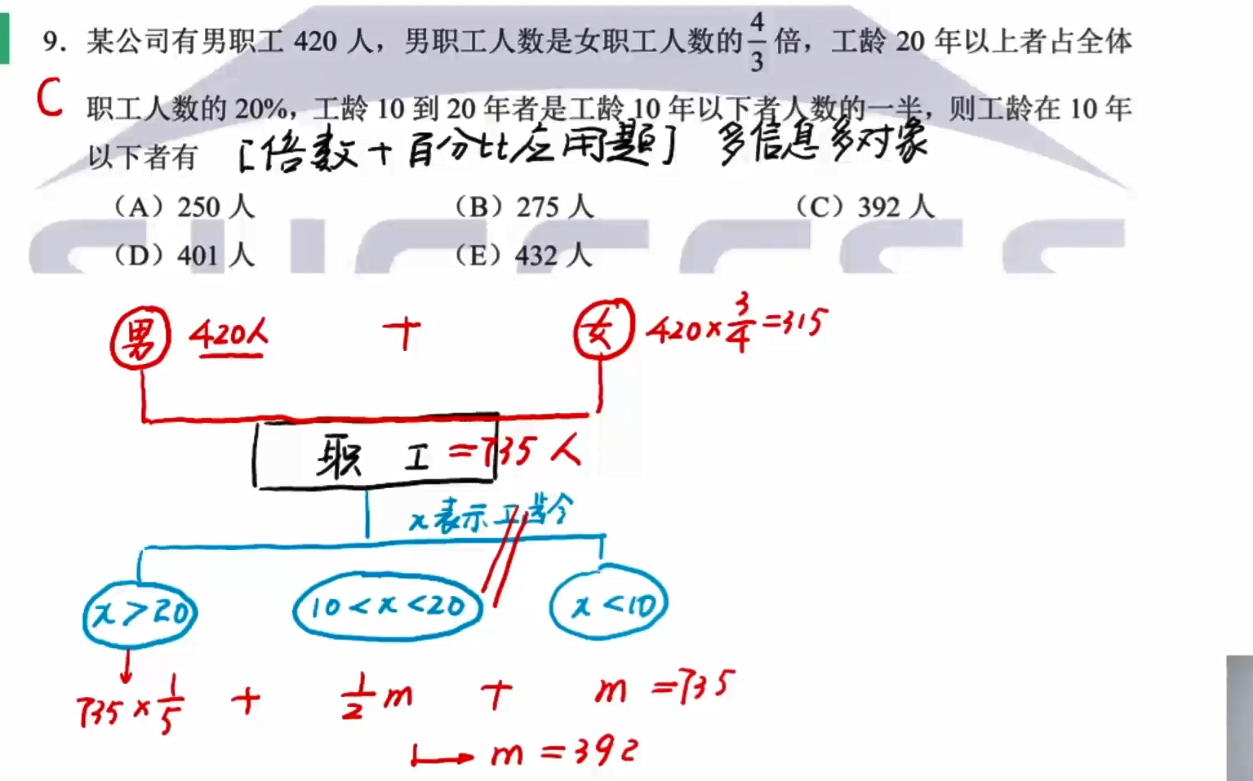 9. 某公司有男职工 420 人，男职工人数是女职工人数的 4/3 倍，工龄 20 年以上者占全体
C 职工人数的 20%，工龄 10 到 20 年者是工龄 10 年以下者人数的一半，则工龄在 10 年
以下者有 [倍数+百分比应用题] 多信息多对象
（A）250 人 （B）275 人 （C）392 人
（D）401 人 （E）432 人
SUCCESS
男 420人 + 女 420×3/4=315
职工=735人
x表示工龄
x>20 10<x<20 x<10
735×1/5 + 1/2m + m=735
m=392